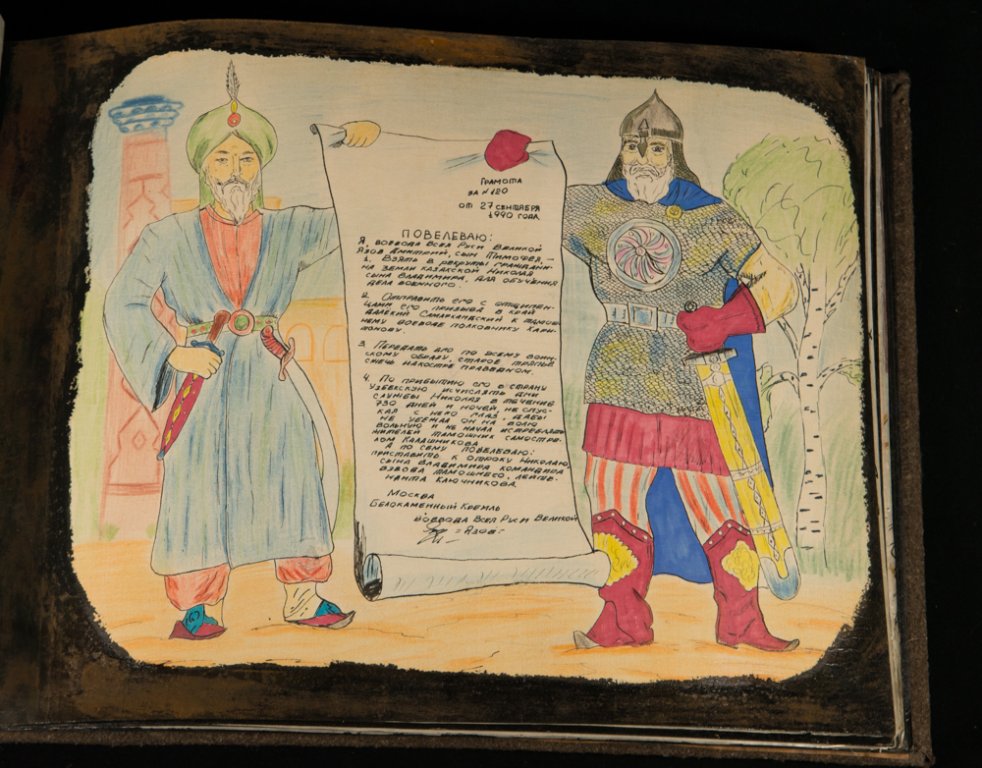 ГРАМОТА
ЗА №120
ОТ 27 СЕНТЯБРЯ
1990 ГОДА
ПОВЕЛЕВАЮ:
Я, ВОЕВОДА ВСЕЯ РУСИ ВЕЛИКОЙ
ЯЗОВ ДМИТРИЙ, СЫН ТИМОФЕЯ, —
1. ВЗЯТЬ В РЕКРУТЫ ГРАЖДАНИ-
НА ЗЕМЛИ КАЗАХСКОЙ НИКОЛАЯ
СЫНА ВЛАДИМИРА, ДЛЯ ОБУЧЕНИЯ
ДЕЛА ВОЕННОГО.
2. ОТПРАВИТЬ ЕГО С ОТЩЕПЕН-
ЦАМИ ЕГО ПРИЗЫВА В КРАЙ
ДАЛЕКИЙ САМАРКАНДСКИЙ К ТАМОШ-
НЕМУ ВОЕВОДЕ ПОЛКОВНИКУ ХАРИ-
ТОНОВУ.
3. ПЕРЕДАТЬ ЕГО ПО ВСЕМУ ВОИН-
СКОМУ ОБРАЗУ, СТАРОЕ ТРЯПЬЕ
СЖЕЧЬ НА КОСТРЕ ПРАВЕДНОМ.
4. ПО ПРИБЫТИЮ ЕГО В СТРАНУ
УЗБЕКСКУЮ ИСЧИСЛЯТЬ ДНИ
СЛУЖБЫ НИКОЛАЯ В ТЕЧЕНИЕ
730 ДНЕЙ И НОЧЕЙ, НЕ СПУС-
КАЯ С НЕГО ГЛАЗ, ДАБЫ
НЕ УБЕЖАЛ ОН НА ВОЛЮ
ВОЛЬНУЮ И НЕ НАЧАЛ ИСТРЕБЛЯТЬ
ЖИТЕЛЕЙ ТАМОШНИХ САМОСТРЕ-
ЛОМ КАЛАШНИКОВА
А ПО СЕМУ ПОВЕЛЕВАЮ:
ПРИСТАВИТЬ К ОТРОКУ НИКОЛАЮ,
СЫНА ВЛАДИМИРА КОМАНДИРА
ВЗВОДА ТАМОШНЕГО, ЛЕЙТЕ-
НАНТА КЛЮЧНИКОВА.
МОСКВА
БЕЛОКАМЕННЫЙ КРЕМЛЬ
ВОЕВОДА ВСЕЯ РУСИ ВЕЛИКОЙ
ЯЗОВ